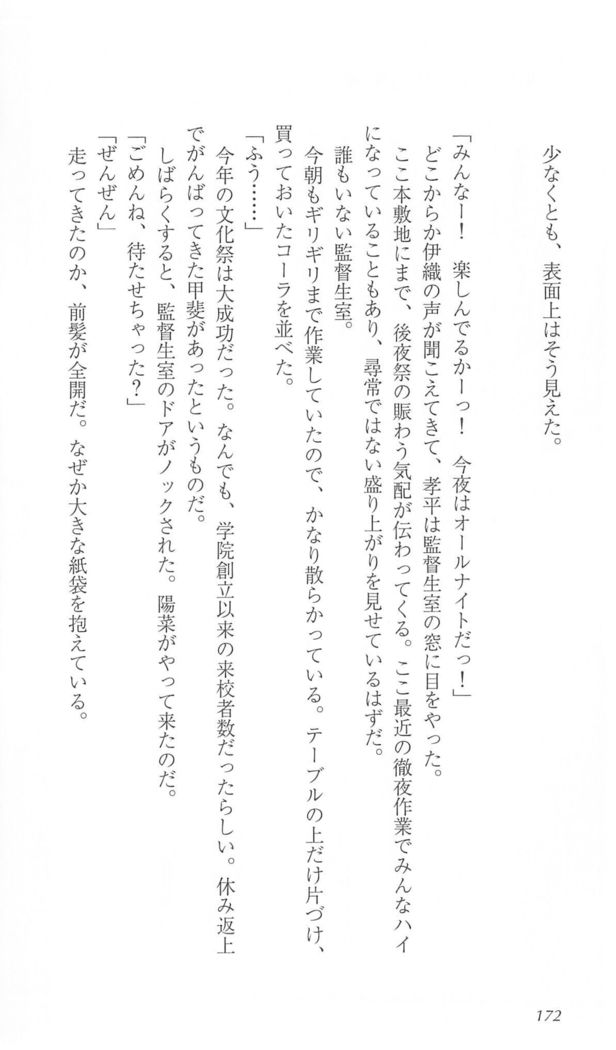 少なくとも、表面上はそう見えた。
「みんなー！　楽しんでるかーっ！　今夜はオールナイトだっ！」
どこからか伊織の声が聞こえてきて、孝平は監督生室の窓に目をやった。
ここ本敷地にまで、後夜祭の賑わう気配が伝わってくる。ここ最近の徹夜作業でみんなハイ
になっていることもあり、尋常ではない盛り上がりを見せているはずだ。
誰もいない監督生室。
今朝もギリギリまで作業していたので、かなり散らかっている。テーブルの上だけ片づけ、
買っておいたコーラを並べた。
「ふう……」
今年の文化祭は大成功だった。なんでも、学院創立以来の来校者数だったらしい。休み返上
でがんばってきた甲斐があったというものだ。
しばらくすると、監督生室のドアがノックされた。陽菜がやって来たのだ。
「ごめんね、待たせちゃった？」
「ぜんぜん」
走ってきたのか、前髪が全開だ。なぜか大きな紙袋を抱えている。
172